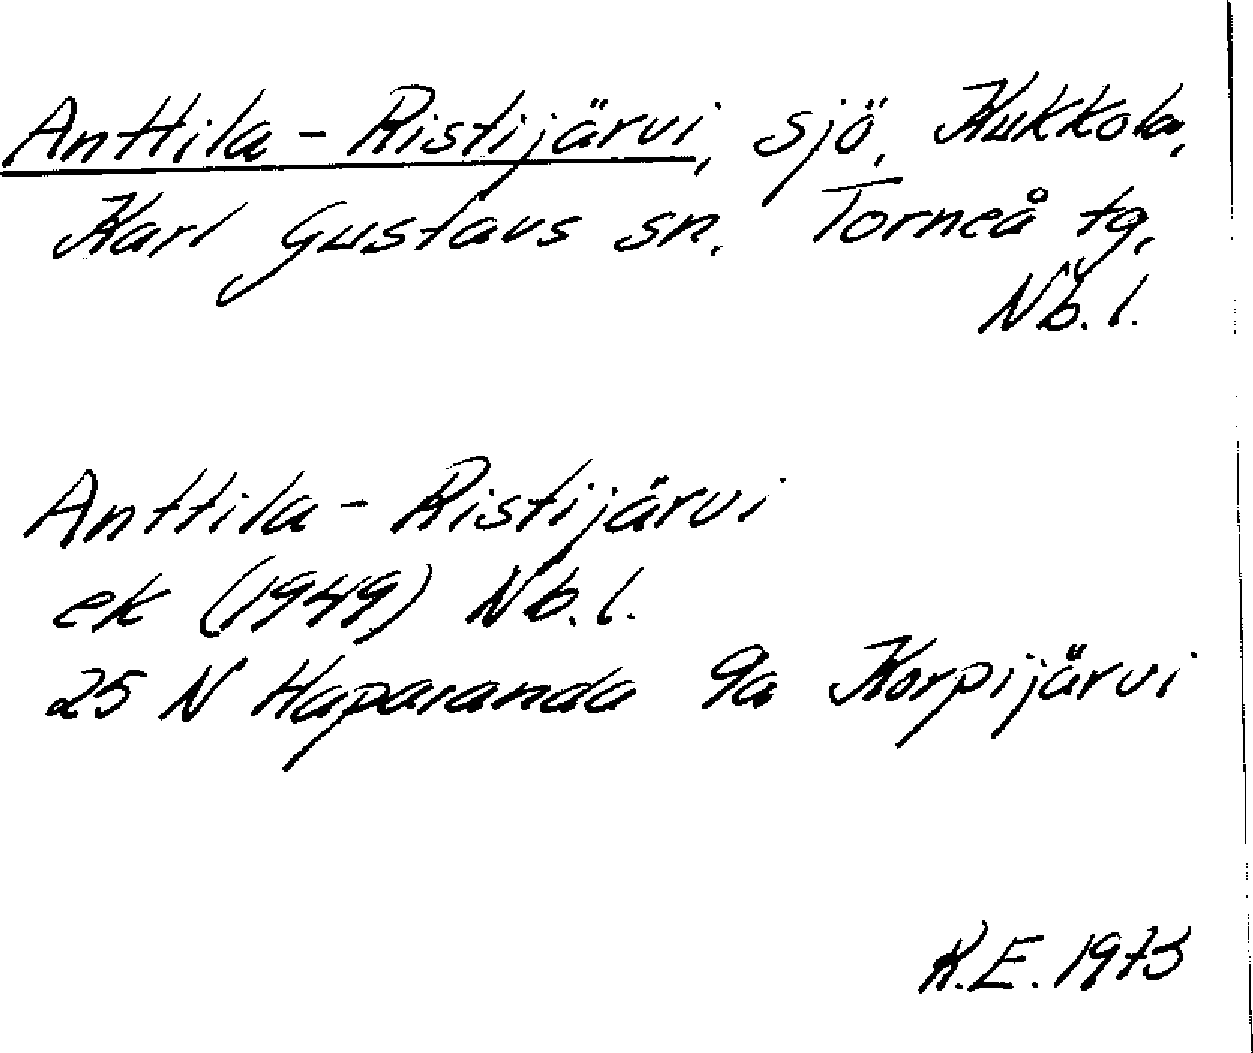 Anttila - Ristijärvi, sjö, Kukkola,
Karl Gustavs sn. Torneå tg,
Nb. l.
Anttila - Ristijärvi
ek (1949) Nb. l.
25 N Haparanda 9a Korpijärvi
K.E. 1973